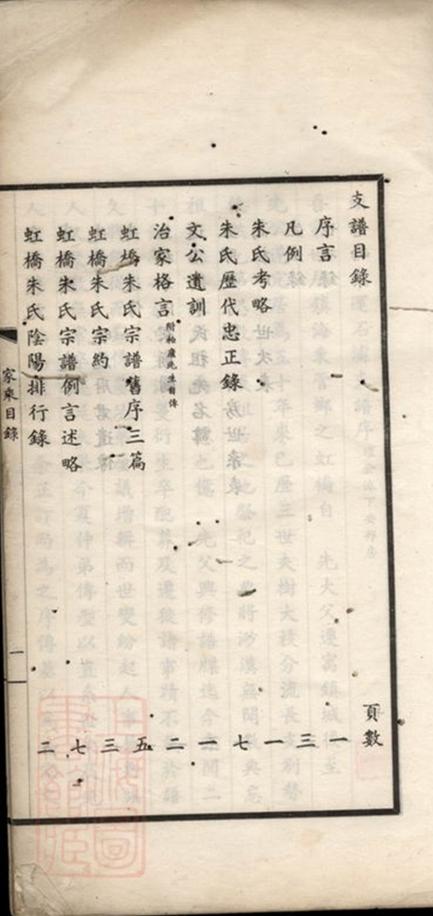 支譜目錄 頁數
序言 一
凡例 三
朱氏考略 一
朱氏歷代忠正錄 七
文公遺訓 一
治家格言 附柏廬先生自傳 二
虹橋朱氏宗譜舊序三篇 五
虹橋朱氏宗約 三
虹橋朱氏宗譜例言述略 七
虹橋朱氏陰陽排行錄 二
家乘目錄 一